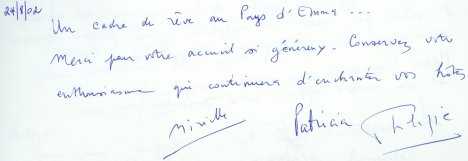 24/8/02
Un cadre de rêve au Pays d'Emma ...
Merci pour votre accueil si généreux. Conservez votre
enthousiasme qui continuera d'enchanter vos hôtes
Mireille Patricia